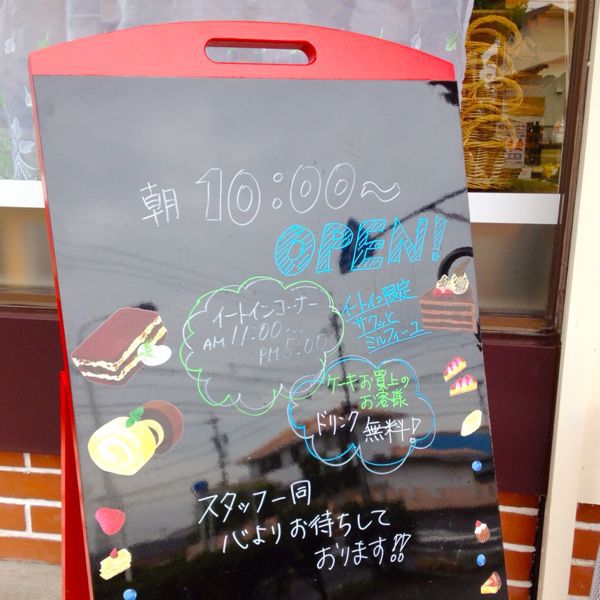 朝 10:00～
OPEN!
イートインコーナー
AM 11:00...
PM 5:00
イートイン限定
サクッと
ミルフィーユ
ケーキお買上の
お客様
ドリンク 無料!
スタッフ一同
心よりお待ちして
おります!!